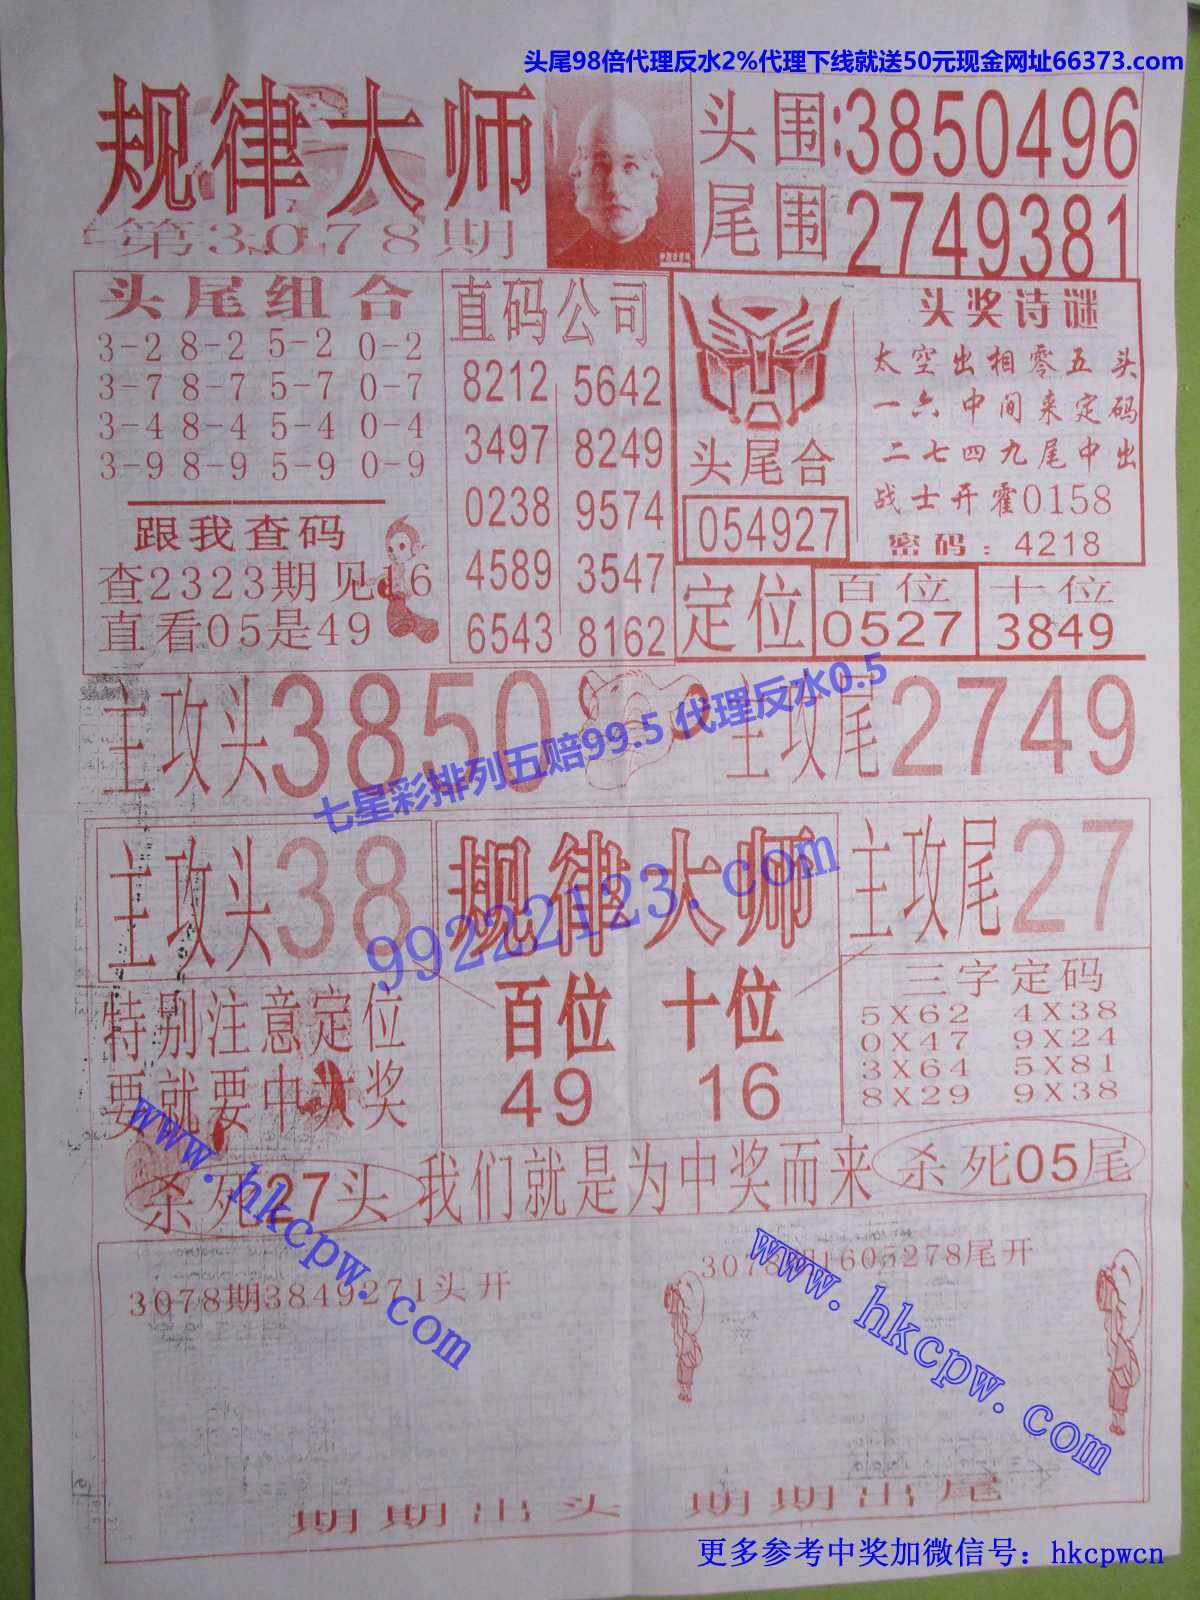 头尾98倍代理反水2%代理下线就送50元现金网址66373.com
规律大师
第3078期
头围:3850496
尾围 2749381
头尾组合
3-2 8-2 5-2 0-2
3-7 8-7 5-7 0-7
3-4 8-4 5-4 0-4
3-9 8-9 5-9 0-9
跟我查码
查2323期见16
直看05是49
直码公司
8212 5642
3497 8249
0238 9574
4589 3547
6543 8162
头尾合
054927
头奖诗谜
太空出相零五头
一六中间来定码
二七四九尾中出
战士开霍0158
密码:4218
定位
百位
0527
十位
3849
主攻头3850
主攻尾2749
七星彩排列五赔99.5 代理反水0.5
主攻头38
规律大师
主攻尾27
99222123.com
特别注意定位
要就要中大奖
百位 十位
49 16
三字定码
5X62 4X38
0X47 9X24
3X64 5X81
8X29 9X38
杀死27头
我们就是为中奖而来
杀死05尾
www.hkcpw.com
www.hkcpw.com
3078期3849271头开
3078期1605278尾开
期期出头 期期出尾
更多参考中奖加微信号：hkcpwcn